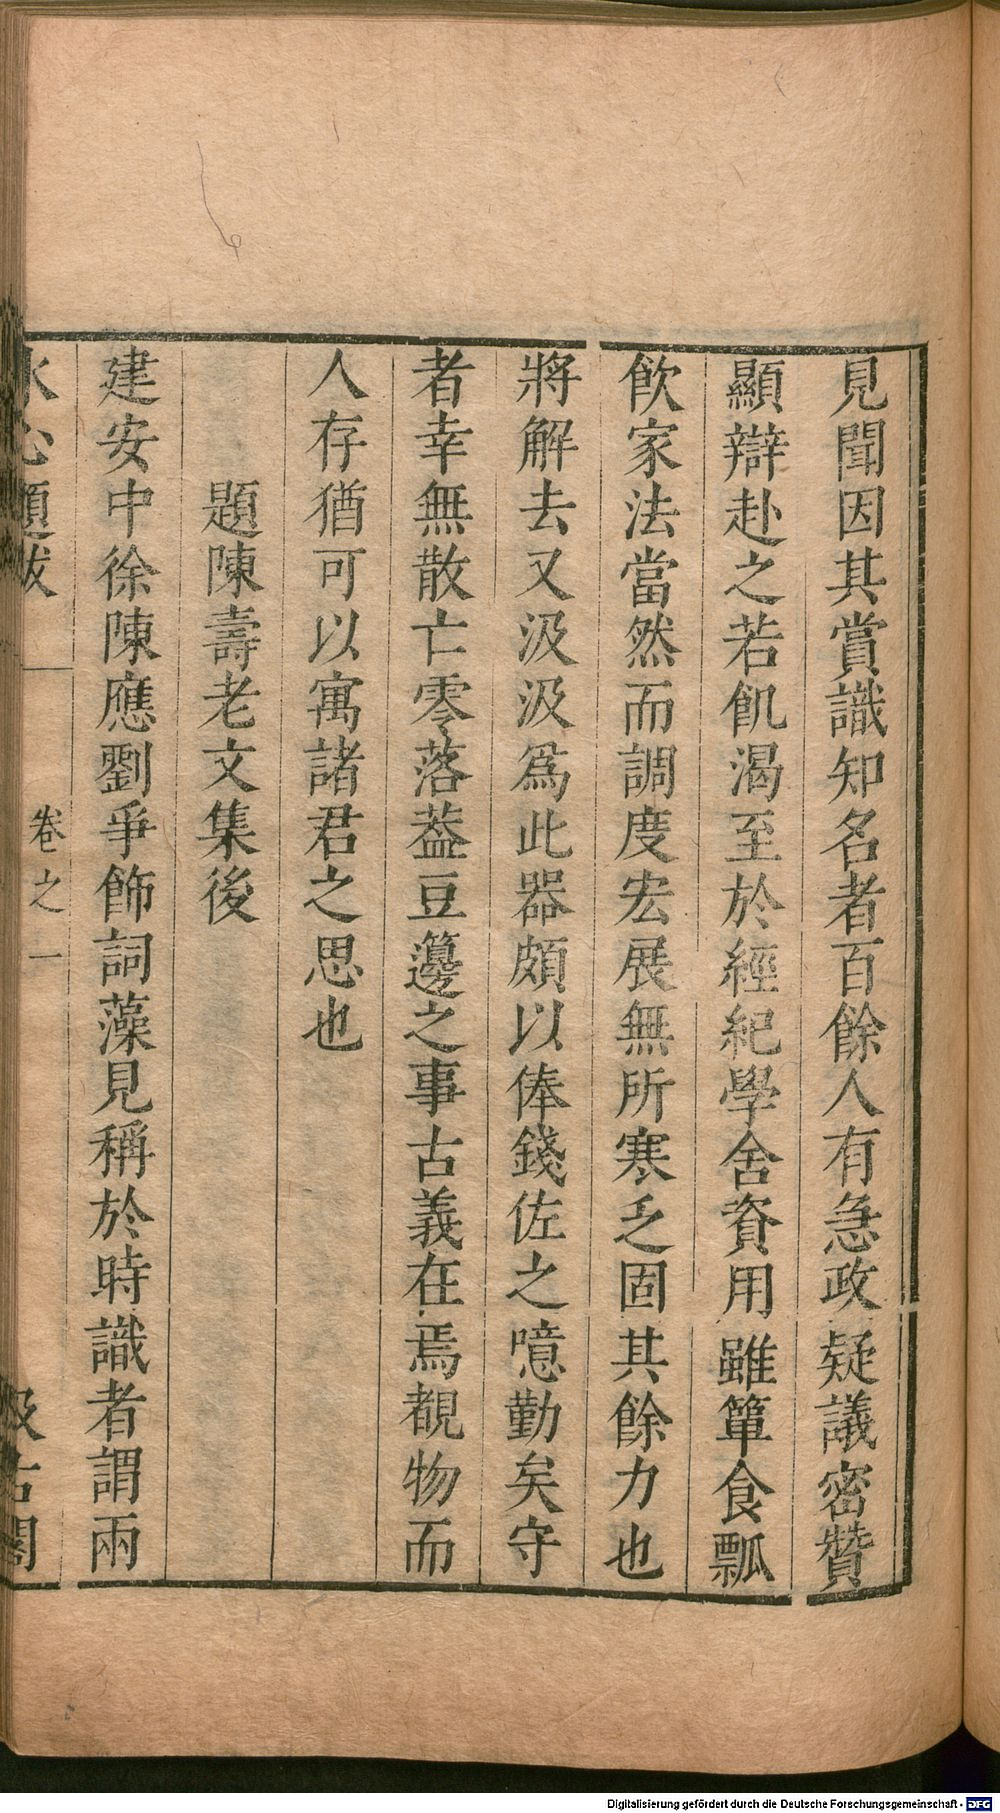 見聞因其賞識知名者百餘人有急政疑議密贊
顯辯赴之若飢渴至於經紀學舍資用雖簞食瓢
飲家法當然而調度宏展無所寒乏固其餘力也
將解去又汲汲爲此器頗以俸錢佐之噫勤矣守
者幸無散亡零落葢豆籩之事古義在焉覩物而
人存猶可以寓諸君之思也
題陳壽老文集後
建安中徐陳應劉爭飾詞藻見稱於時識者謂兩
水心題跋
卷之一
汲古閣
Digitalisierung gefördert durch die Deutsche Forschungsgemeinschaft - DFG